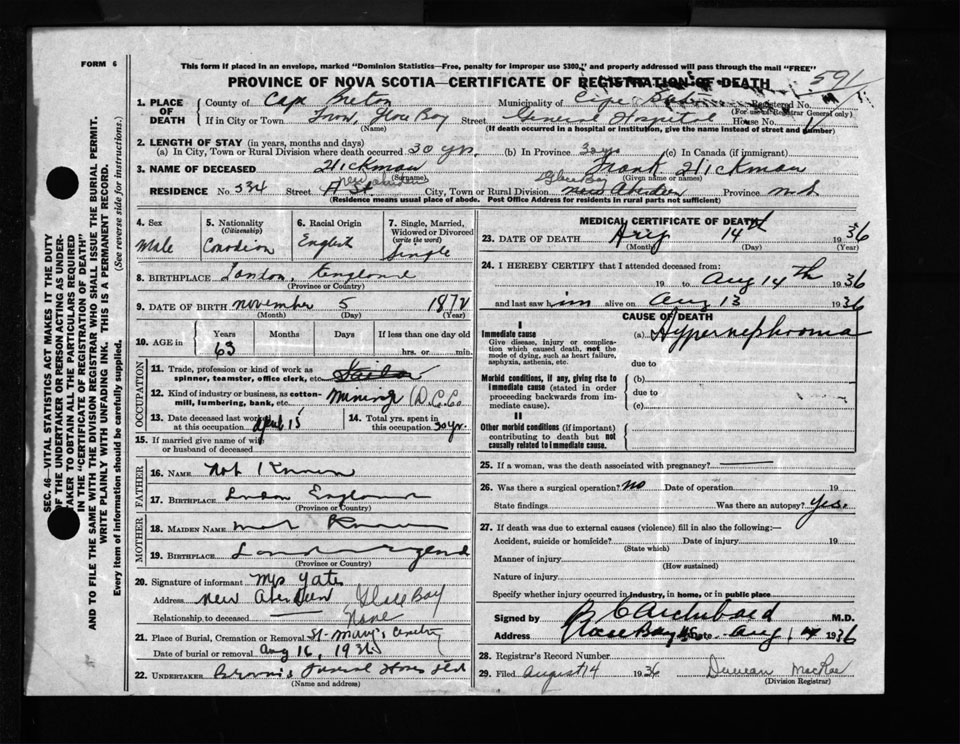 FORM 6
This form if placed in an envelope, marked "Dominion Statistics—Free, penalty for improper use $300," and properly addressed will pass through the mail "FREE"
PROVINCE OF NOVA SCOTIA—CERTIFICATE OF REGISTRATION OF DEATH
591
1. PLACE OF DEATH
County of Cape Breton Municipality of Cape Breton Registered No.
(For use of Registrar General only)
If in City or Town Town, Glace Bay Street General Hospital House No.
(Name) (If death occurred in a hospital or institution, give the name instead of street and number)
2. LENGTH OF STAY (in years, months and days)
(a) In City, Town or Rural Division where death occurred 30 yr. (b) In Province 30 yr (c) In Canada (if immigrant)
3. NAME OF DECEASED Hickman Frank Hickman
(Surname) (Given name or names)
New Aberdeen Glace Bay
RESIDENCE No. 534 Street A St. City, Town or Rural Division New Aberdeen Province N.S.
(Residence means usual place of abode. Post Office Address for residents in rural parts not sufficient)
4. Sex
Male
5. Nationality
(Citizenship)
Canadian
6. Racial Origin
English
7. Single, Married, Widowed or Divorced
(write the word)
Single
8. BIRTHPLACE London, England
(Province or Country)
9. DATE OF BIRTH November 5 1872
(Month) (Day) (Year)
10. AGE in
Years Months Days If less than one day old
63 hrs. or min.
OCCUPATION
11. Trade, profession or kind of work as spinner, teamster, office clerk, etc.
12. Kind of industry or business, as cotton-mill, lumbering, bank, etc. Mining (D.C.Co
13. Date deceased last worked at this occupation April 15
14. Total yrs. spent in this occupation 30 yr.
15. If married give name of wife or husband of deceased
FATHER
16. NAME Not Known
17. BIRTHPLACE London England
(Province or Country)
MOTHER
18. MAIDEN NAME Not Known
19. BIRTHPLACE London England
(Province or Country)
20. Signature of informant Mrs Yates
Address New Aberdeen Glace Bay
Relationship to deceased None
21. Place of Burial, Cremation or Removal St. Mary's Cemetery
Date of burial or removal Aug 16, 1936
22. UNDERTAKER Brown's Funeral Home Ltd
(Name and address)
MEDICAL CERTIFICATE OF DEATH
23. DATE OF DEATH Aug 14th 1936
(Month) (Day) (Year)
24. I HEREBY CERTIFY that I attended deceased from:
19 to Aug 14th 1936
and last saw him alive on Aug 13 1936
CAUSE OF DEATH
I
Immediate cause
Give disease, injury or complication which caused death, not the mode of dying, such as heart failure, asphyxia, asthenia, etc.
(a) Hypernephroma
due to
Morbid conditions, if any, giving rise to immediate cause (stated in order proceeding backwards from immediate cause).
(b)
due to
(c)
II
Other morbid conditions (if important) contributing to death but not causally related to immediate cause.
25. If a woman, was the death associated with pregnancy?
26. Was there a surgical operation? No Date of operation 19
State findings Was there an autopsy? Yes.
27. If death was due to external causes (violence) fill in also the following:—
Accident, suicide or homicide? Date of injury 19
(State which)
Manner of injury
(How sustained)
Nature of injury
Specify whether injury occurred in industry, in home, or in public place
Signed by B C Archibald M.D.
Address Glace Bay NS Date Aug 14 1936
28. Registrar's Record Number
29. Filed August 14 1936 Duncan MacRae
(Division Registrar)
SEC. 46—VITAL STATISTICS ACT MAKES IT THE DUTY
OF THE UNDERTAKER OR PERSON ACTING AS UNDER-
TAKER TO OBTAIN ALL THE PARTICULARS REQUIRED
IN THE "CERTIFICATE OF REGISTRATION OF DEATH"
AND TO FILE THE SAME WITH THE DIVISION REGISTRAR WHO SHALL ISSUE THE BURIAL PERMIT.
WRITE PLAINLY WITH UNFADING INK. THIS IS A PERMANENT RECORD.
Every item of information should be carefully supplied. (See reverse side for instructions.)